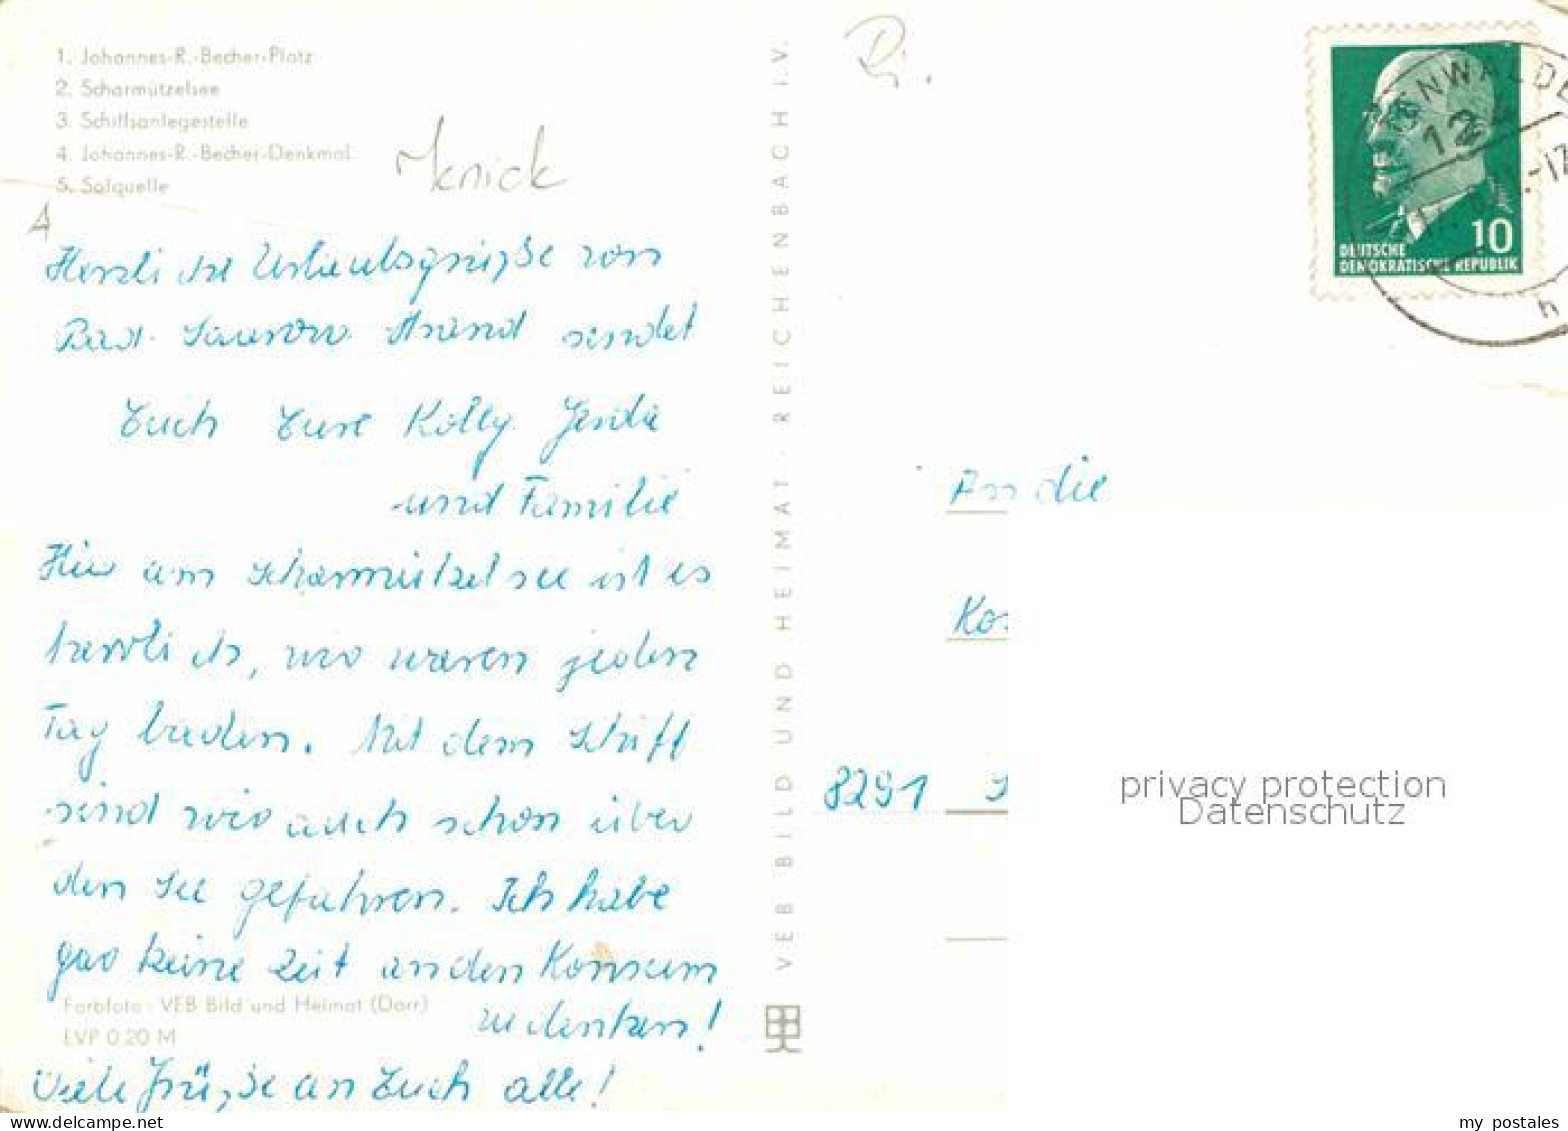 1. Johannes-R.-Becher-Platz
2. Scharmützelsee
3. Schiffsanlegestelle
4. Johannes-R.-Becher-Denkmal
5. Solquelle
Knick
4
Herzliche Urlaubsgrüße von
Bad. Saarow. Strand sendet
Euch Eure Kolly. Gerda
und Familie
Hier am Scharmützelsee ist es
herrlich, wir waren jeden
Tag baden. Mit dem Schiff
sind wir auch schon über
den See gefahren. Ich habe
gar keine Zeit an den Konsum
zu denken!
Viele Grüße an Euch alle!
Farbfoto: VEB Bild und Heimat (Darr)
EVP 0.20 M
VEB BILD UND HEIMAT · REICHENBACH I.V.
Ri.
DEUTSCHE
DEMOKRATISCHE REPUBLIK
10
NWALDE
12
-17
h
An die
Ko
8291 S
privacy protection
Datenschutz
my postales